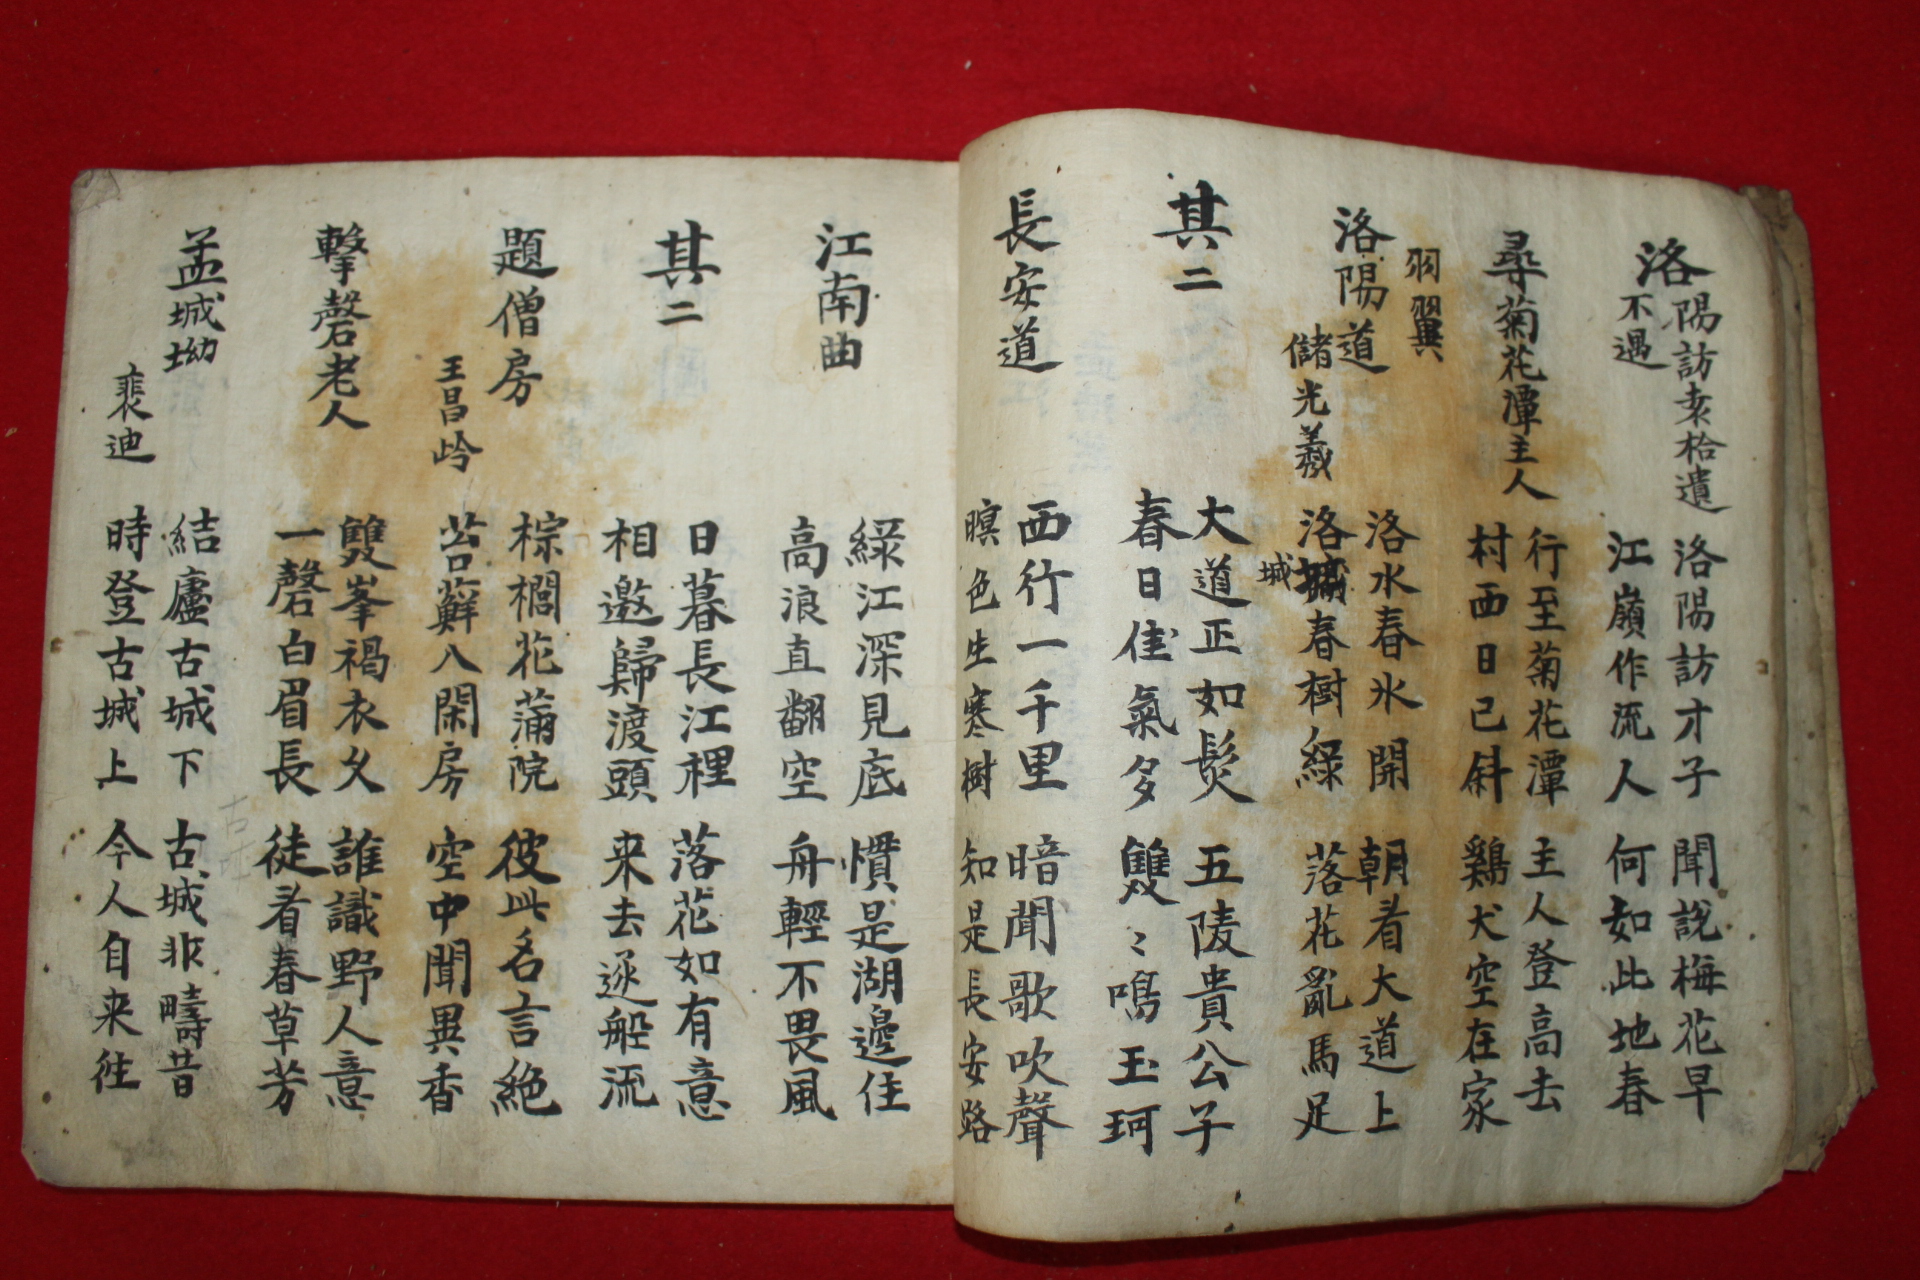 洛陽訪袁拾遺
不遇
洛陽訪才子 聞說梅花早
江嶺作流人 何如此地春
尋菊花潭主人
行至菊花潭 主人登高去
村西日已斜 鷄犬空在家
羽翼
洛陽道
儲光羲
洛水春氷開 朝看大道上
洛城春樹綠 落花亂馬足
城
其二
大道正如髮 五陵貴公子
春日佳氣多 雙〻鳴玉珂
長安道
西行一千里 暗聞歌吹聲
暝色生寒樹 知是長安路
江南曲
綠江深見底 慣是湖邊住
高浪直翻空 舟輕不畏風
其二
日暮長江裡 落花如有意
相邀歸渡頭 来去逐船流
題僧房
王昌岭
棕櫚花蒲院 彼此名言絶
苔蘚入閑房 空中聞異香
擊磬老人
雙峯褐衣久 誰識野人意
一磬白眉長 徒看春草芳
孟城坳
裴迪
結廬古城下 古城非疇昔
時登古城上 今人自来往